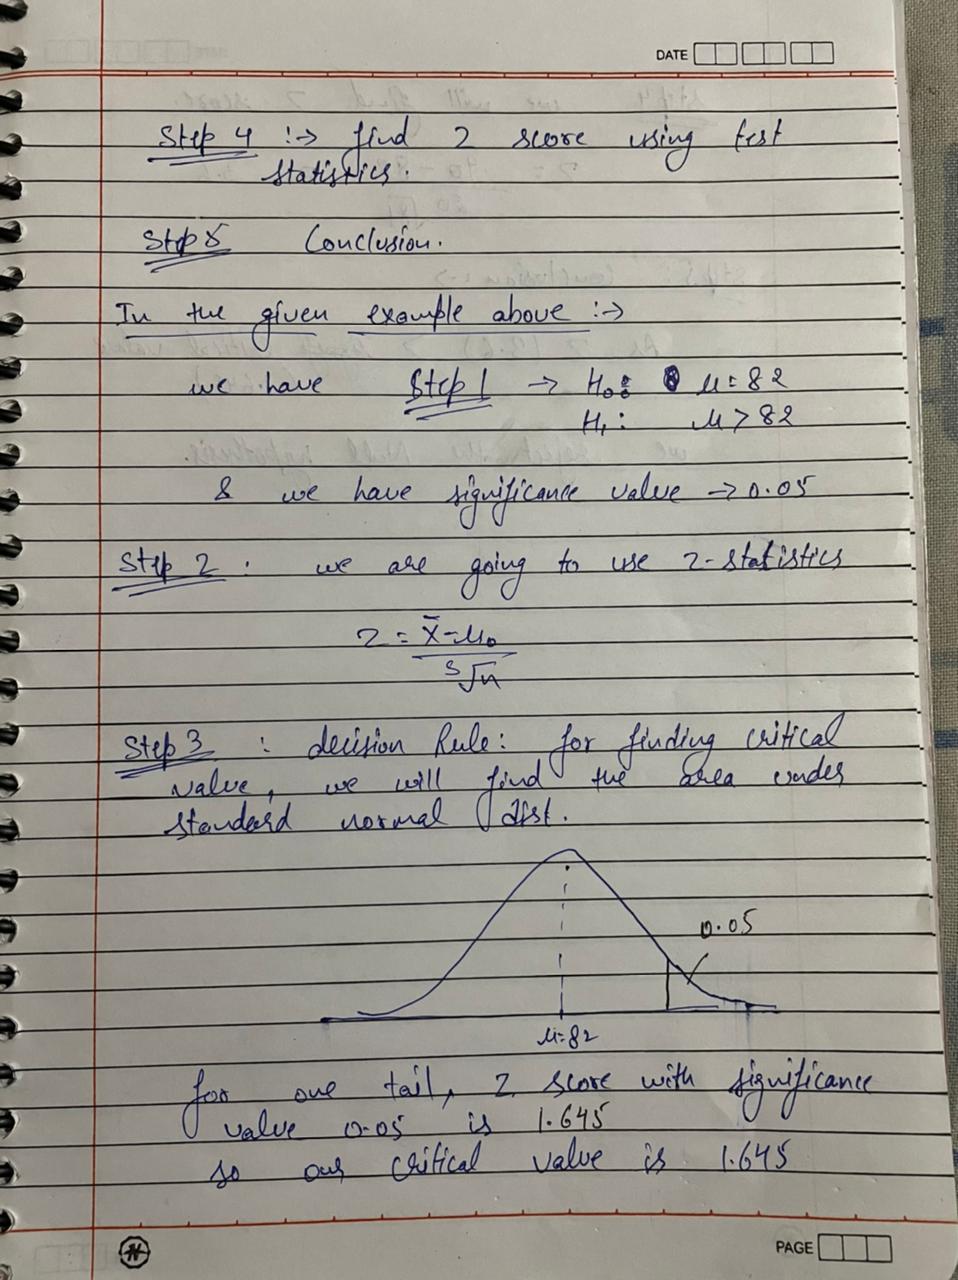 DATE
Step 4 :→ find z score using test
statistics.
Step 5 Conclusion.
In the given example above :→
we have Step 1 → H₀: μ = 82
H₁: μ > 82
& we have significance value → 0.05
Step 2 : we are going to use z-statistics
z = x̄-μ₀
s/√n
Step 3 : decision Rule: for finding critical
value, we will find the area under
standard normal dist.
0.05
μ=82
for one tail, z score with significance
value 0.05 is 1.645
so our critical value is 1.645
N
PAGE